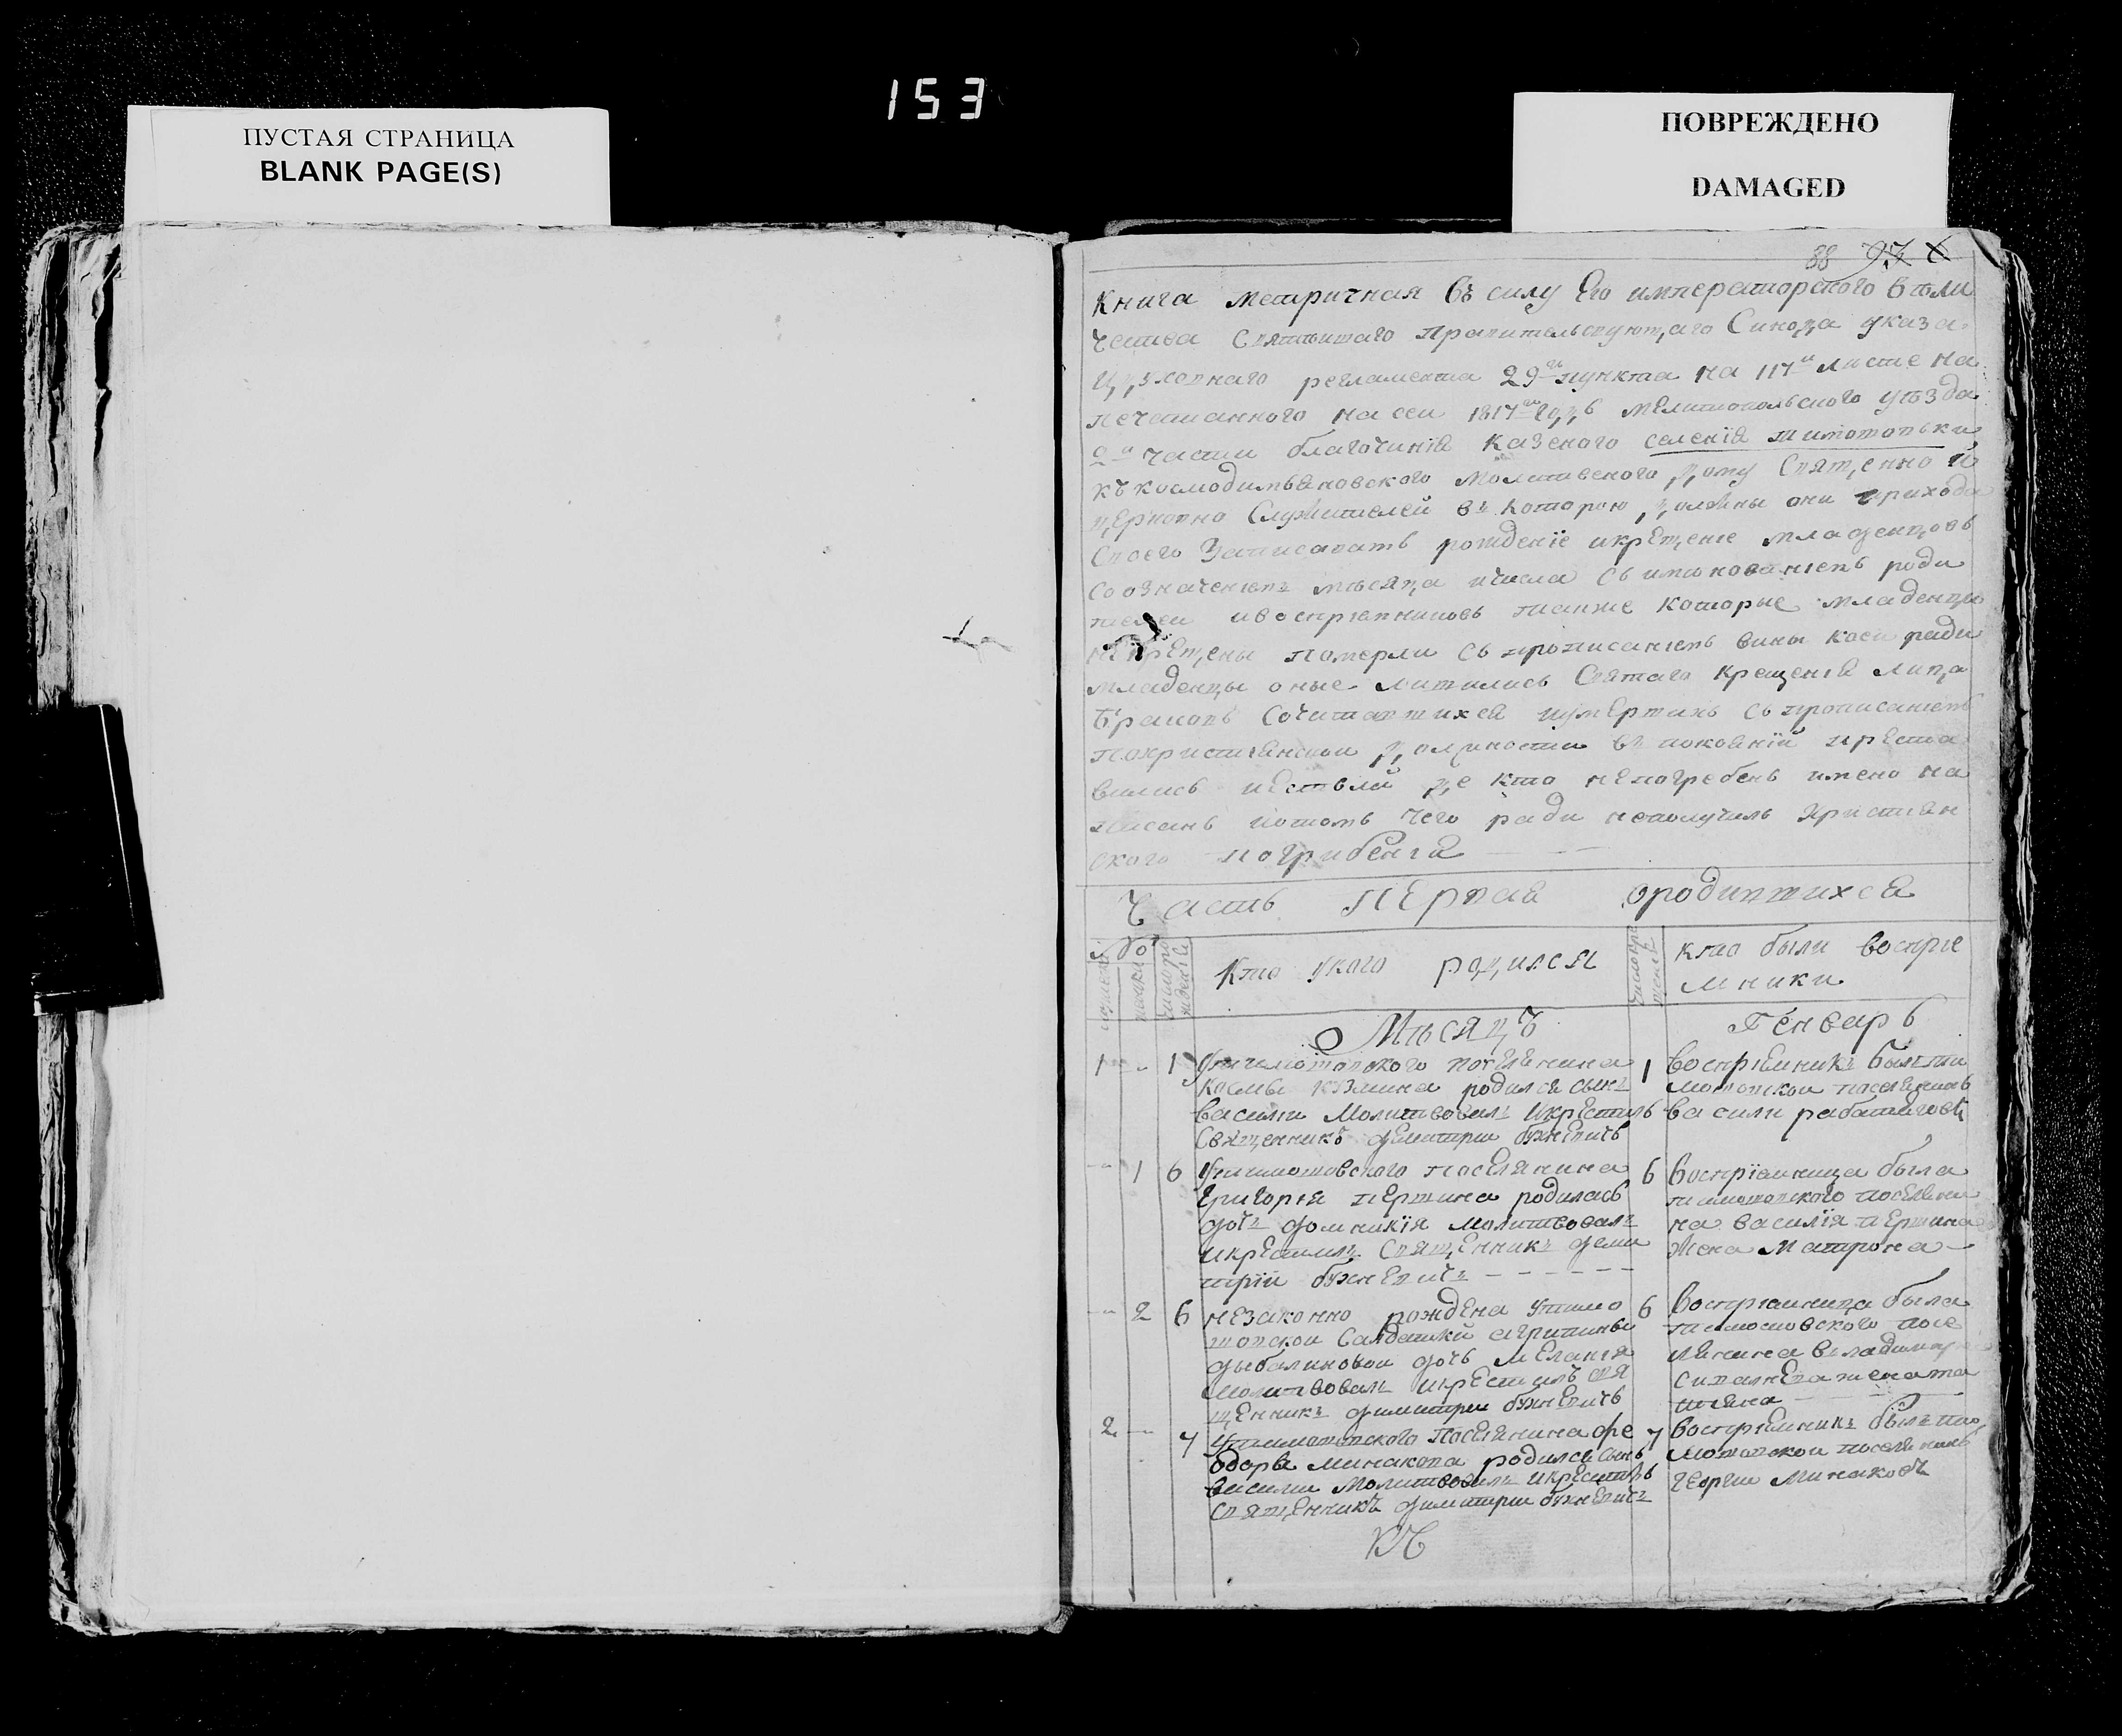 153
ПУСТАЯ СТРАНИЦА
BLANK PAGE(S)
ПОВРЕЖДЕНО
DAMAGED
88 97
Книга метричная въ силу Его императорского вѣли
чества Святѣишаго правительствующаго Синода указа
и духовнаго регламента 29го пункта на 117м листе на
печатанного на сеи 1817й годъ мелитопольского уѣзда
2й части благочинїя казеного селенїя тимошовки
къ космодимьяновского молитвеного дому Священно и
церковно служителей въ которою должны они прихода
своего записовать рождениїе и крещение младенцовъ
со означениемъ мѣсяца и числа съ имянованиемъ роди
телеи и восприемниковъ также которые младенцы
некрещены померли съ прописаниемъ вины коеи ради
младенцы оные лишились Святаго крещения лица
браковъ сочитавшихся и умершихъ съ прописаниемъ
по христианскои должности въ покоянїй преста
вились и естьли где кто непогребенъ имено на
писанъ потомъ чего ради неполучилъ христиан
ского погрибения
Часть первая о родившихся
№
Кто у кого родился
кто были воспрїе
мники
Мѣсяцъ Генварь
1 - 1 У тимошовского поселянина
космы кузмина родился сынъ
василии молитвовалъ и крестилъ
Священникъ Димитрии
1 воспрїемникъ былъ ти
мошовскои поселянинъ
василии
- 1 6 У тимошовского поселянина
Григория першина родилась
дочь домникїя молитвовалъ
и крестилъ Священникъ дими
трїи
6 воспрїемница была
тимошовского поселяни
на василїя першина
жена Матрона
- 2 6 незаконно рождена у тимо
шовскои салдатки агрипины
дыбалиновои дочь мелания
молитвовалъ и крестилъ свя
щенникъ димитрии
6 воспрїемница была
тимошовского посе
лянина владимира
жена та
тияна
2 - 7 У тимошовского поселянина фе
одора минакова родился сынъ
василии молитвовалъ и крестилъ
священникъ димитрии
7 воспрїемникъ былъ ти
мошовскои поселянинъ
георгии Минаковъ